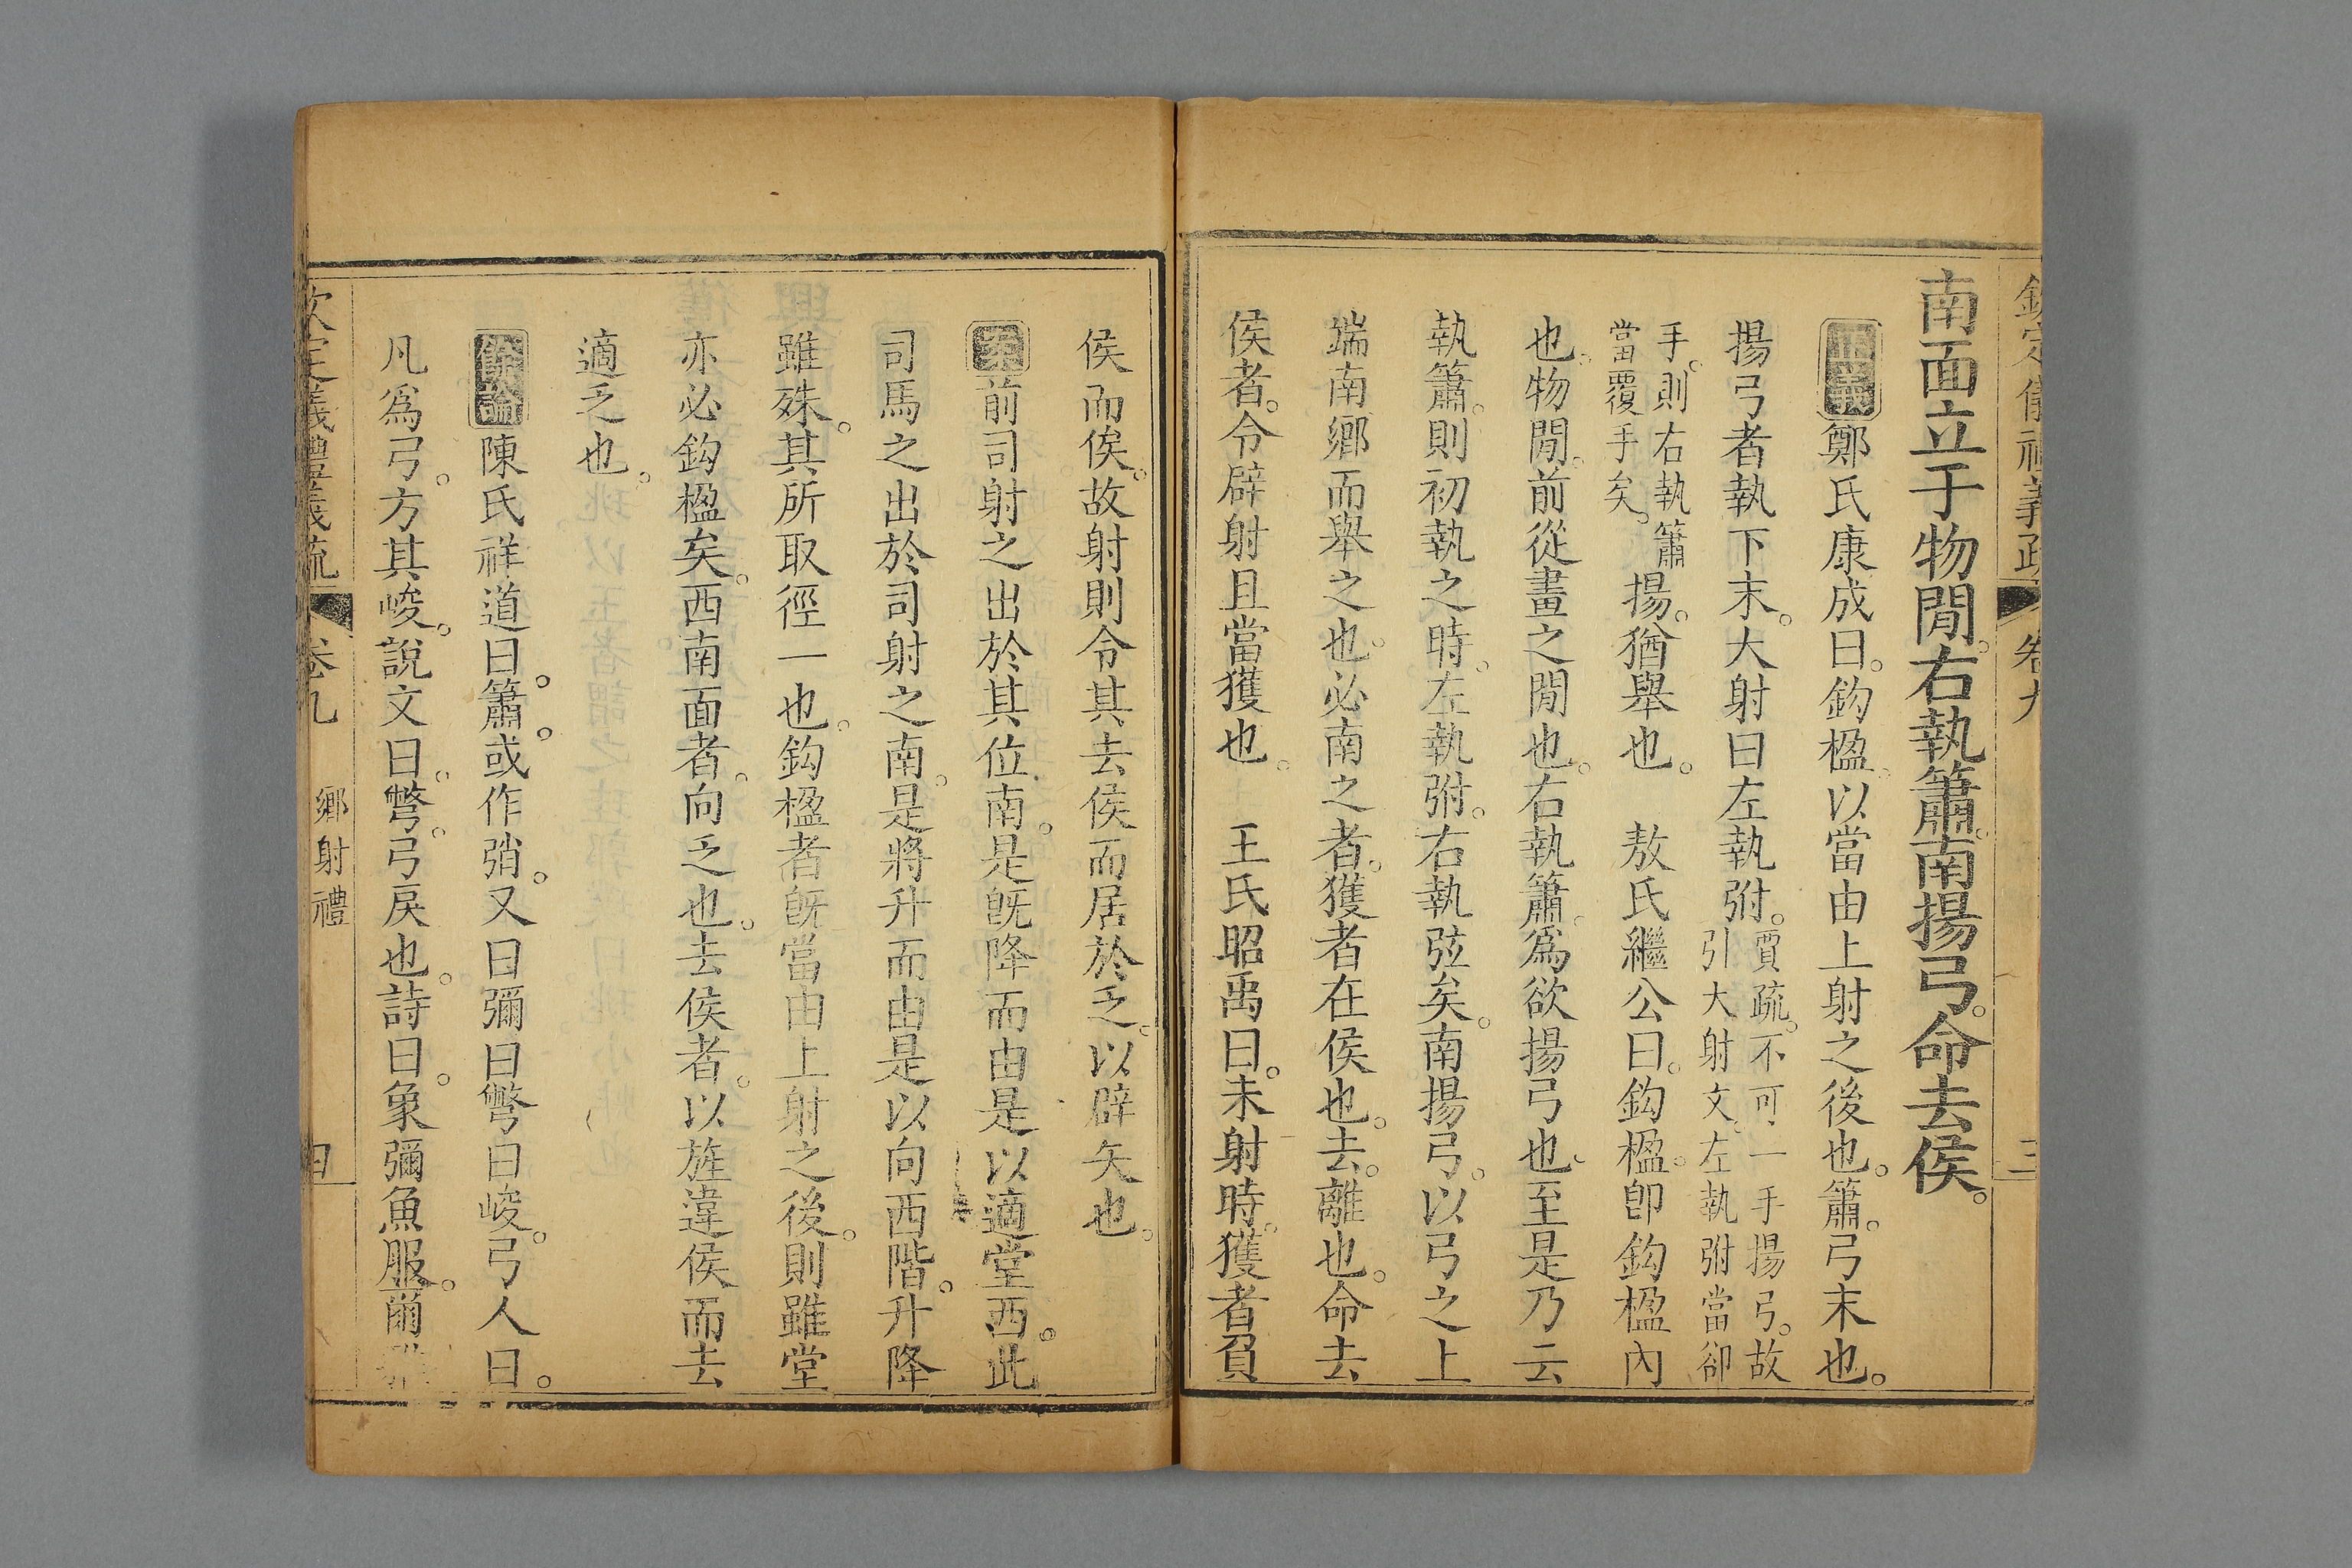 欽定儀禮義疏 卷九 三
南面立于物閒。右執簫。南揚弓。命去侯。
正義鄭氏康成曰。鈎楹。以當由上射之後也。簫。弓末也。
揚弓者執下末。大射曰左執弣。賈疏。不可一手揚弓。故
引大射文。左執弣當卻
手。則右執簫
當覆手矣。揚。猶舉也。 敖氏繼公曰。鈎楹。即鈎楹內
也。物閒。前從畫之閒也。右執簫。爲欲揚弓也。至是乃云
執簫。則初執之時。左執弣。右執弦矣。南揚弓。以弓之上
端南鄉而舉之也。必南之者。獲者在侯也。去。離也。命去
侯者。令辟射且當獲也。 王氏昭禹曰。未射時。獲者負
侯而俟。故射則令其去侯而居於乏。以辟矢也。
案前司射之出於其位南。是旣降而由是以適堂西。此
司馬之出於司射之南。是將升而由是以向西階。升降
雖殊。其所取徑一也。鈎楹者旣當由上射之後。則雖堂
亦必鈎楹矣。西南面者。向乏也。去侯者。以旌違侯而去
適乏也。
餘論陳氏祥道曰。簫。或作弰。又曰彌曰彆曰峻。弓人曰。
凡爲弓。方其峻。說文曰。彆。弓戾也。詩曰。象彌魚服。爾
欽定儀禮義疏 卷九 鄉射禮